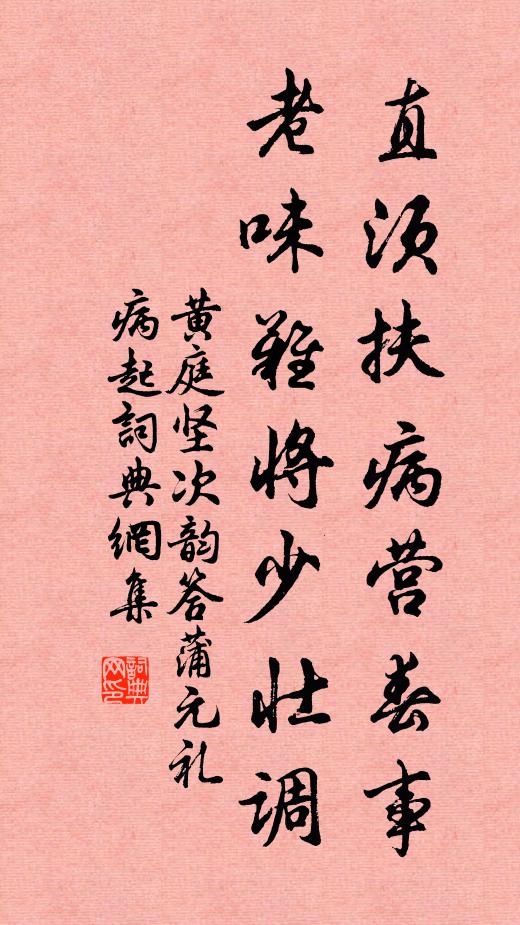 直须扶病营春事
老味难将少壮调
黄庭坚次韵答蒲元礼
病起詞典網集
詞典
网印